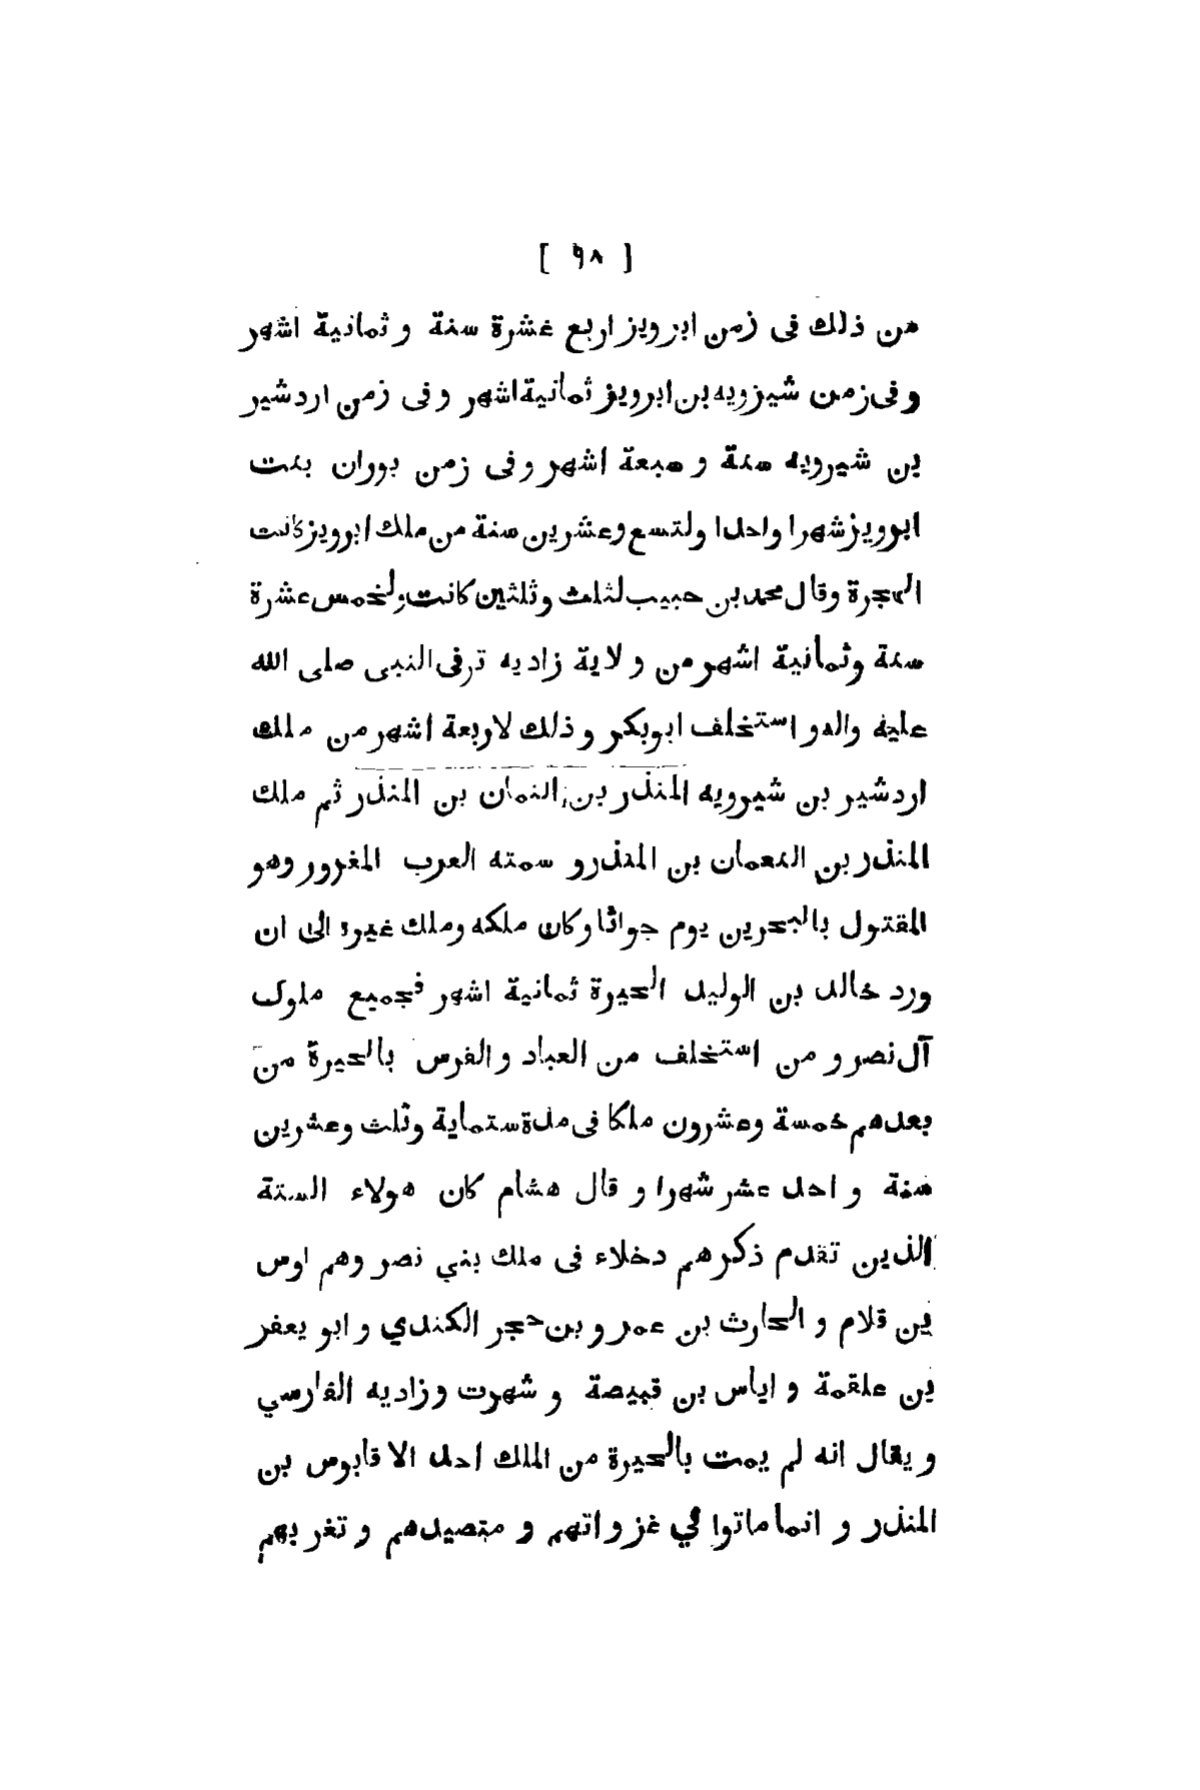 [ ٩٨ ]
من ذلك فى زمن ابرويز اربع عشرة سنة و ثمانية اشهر
و فى زمن شيزويه بن ابرويز ثمانية اشهر و فى زمن اردشير
بن شيرويه سنة و سبعة اشهر و فى زمن بوران بنت
ابرويز شهرا واحدا ولتسع وعشرين سنة من ملك ابرويز كانت
الهجرة وقال محمد بن حبيب لثلث وثلثين كانت ولخمس عشرة
سنة وثمانية اشهر من ولاية زاديه توفى النبى صلى الله
عليه واله و استخلف ابوبكر و ذلك لاربعة اشهر من ملك
اردشير بن شيرويه المنذر بن النمان بن المنذر ثم ملك
المنذر بن النعمان بن المنذر و سمته العرب المغرور وهو
المقتول بالبحرين يوم جواثا وكان ملكه وملك غيره الى ان
ورد خالد بن الوليد الحيرة ثمانية اشهر فجميع ملوك
آل نصر و من استخلف من العباد و الفرس بالحيرة من
بعدهم خمسة وعشرون ملكا فى مدة ستماية وثلث وعشرين
سنة و احد عشر شهرا و قال هشام كان هولاء الستة
الذين تقدم ذكرهم دخلاء فى ملك بني نصر وهم اوس
بن قلام و الحارث بن عمرو بن حجر الكندي و ابو يعفر
بن علقمة و اياس بن قبيصة و شهرت وزاديه الفارسي
و يقال انه لم يمت بالحيرة من الملك احد الا قابوس بن
المنذر و انما ماتوا في غزواتهم و متصيدهم و تغربهم